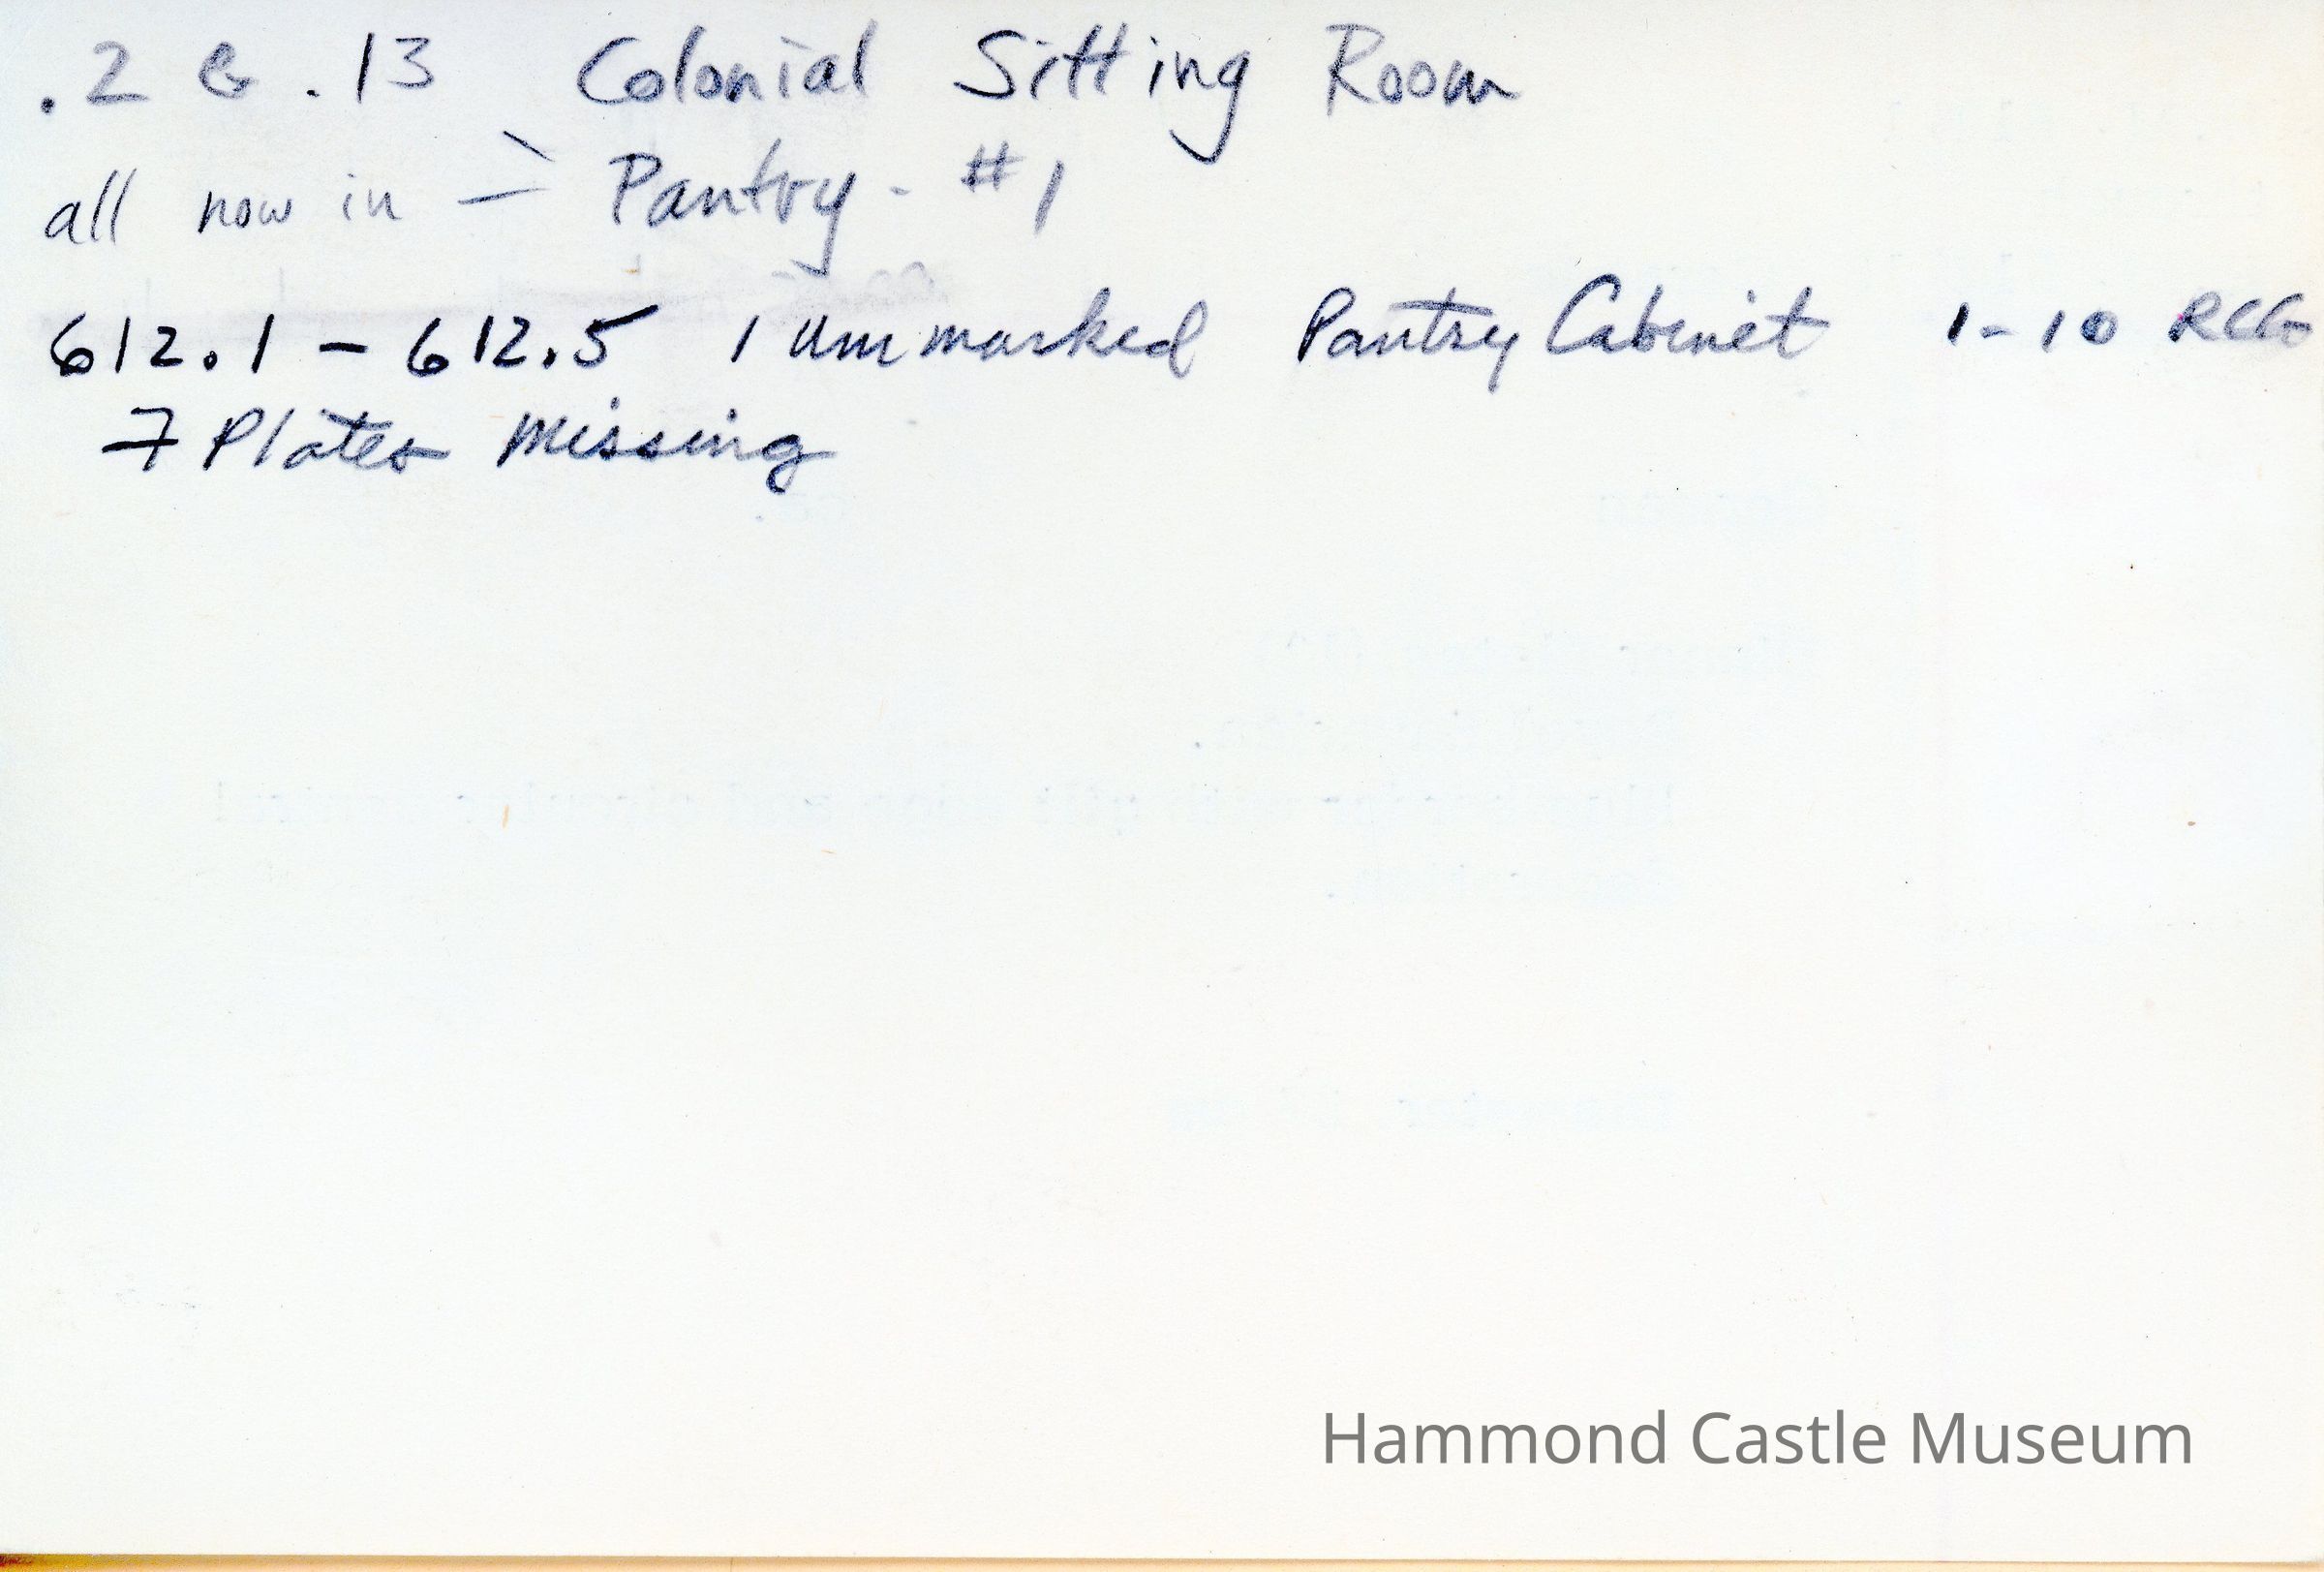 .2 & .13 Colonial Sitting Room
all now in → Pantry - #1
612.1 - 612.5 1 Unmarked Pantry Cabinet 1-10 RCG
7 Plates Missing
Hammond Castle Museum